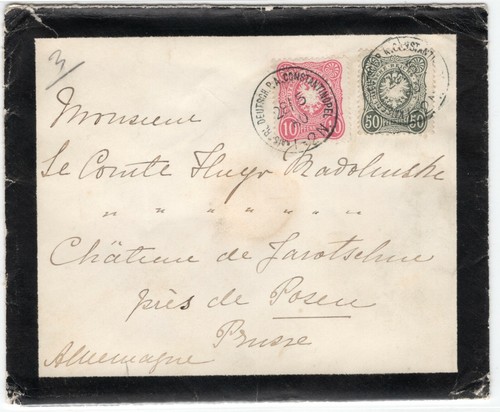 KAISERL. DEUTSCH. P.A. CONSTANTINOPEL
10 PFENNIG 10
50 PFENNIG 50
Monsieur
Le Comte Hugo Radolinski
" " " " " "
Château de Jarotschin
près de Posen
Prusse
Allemagne